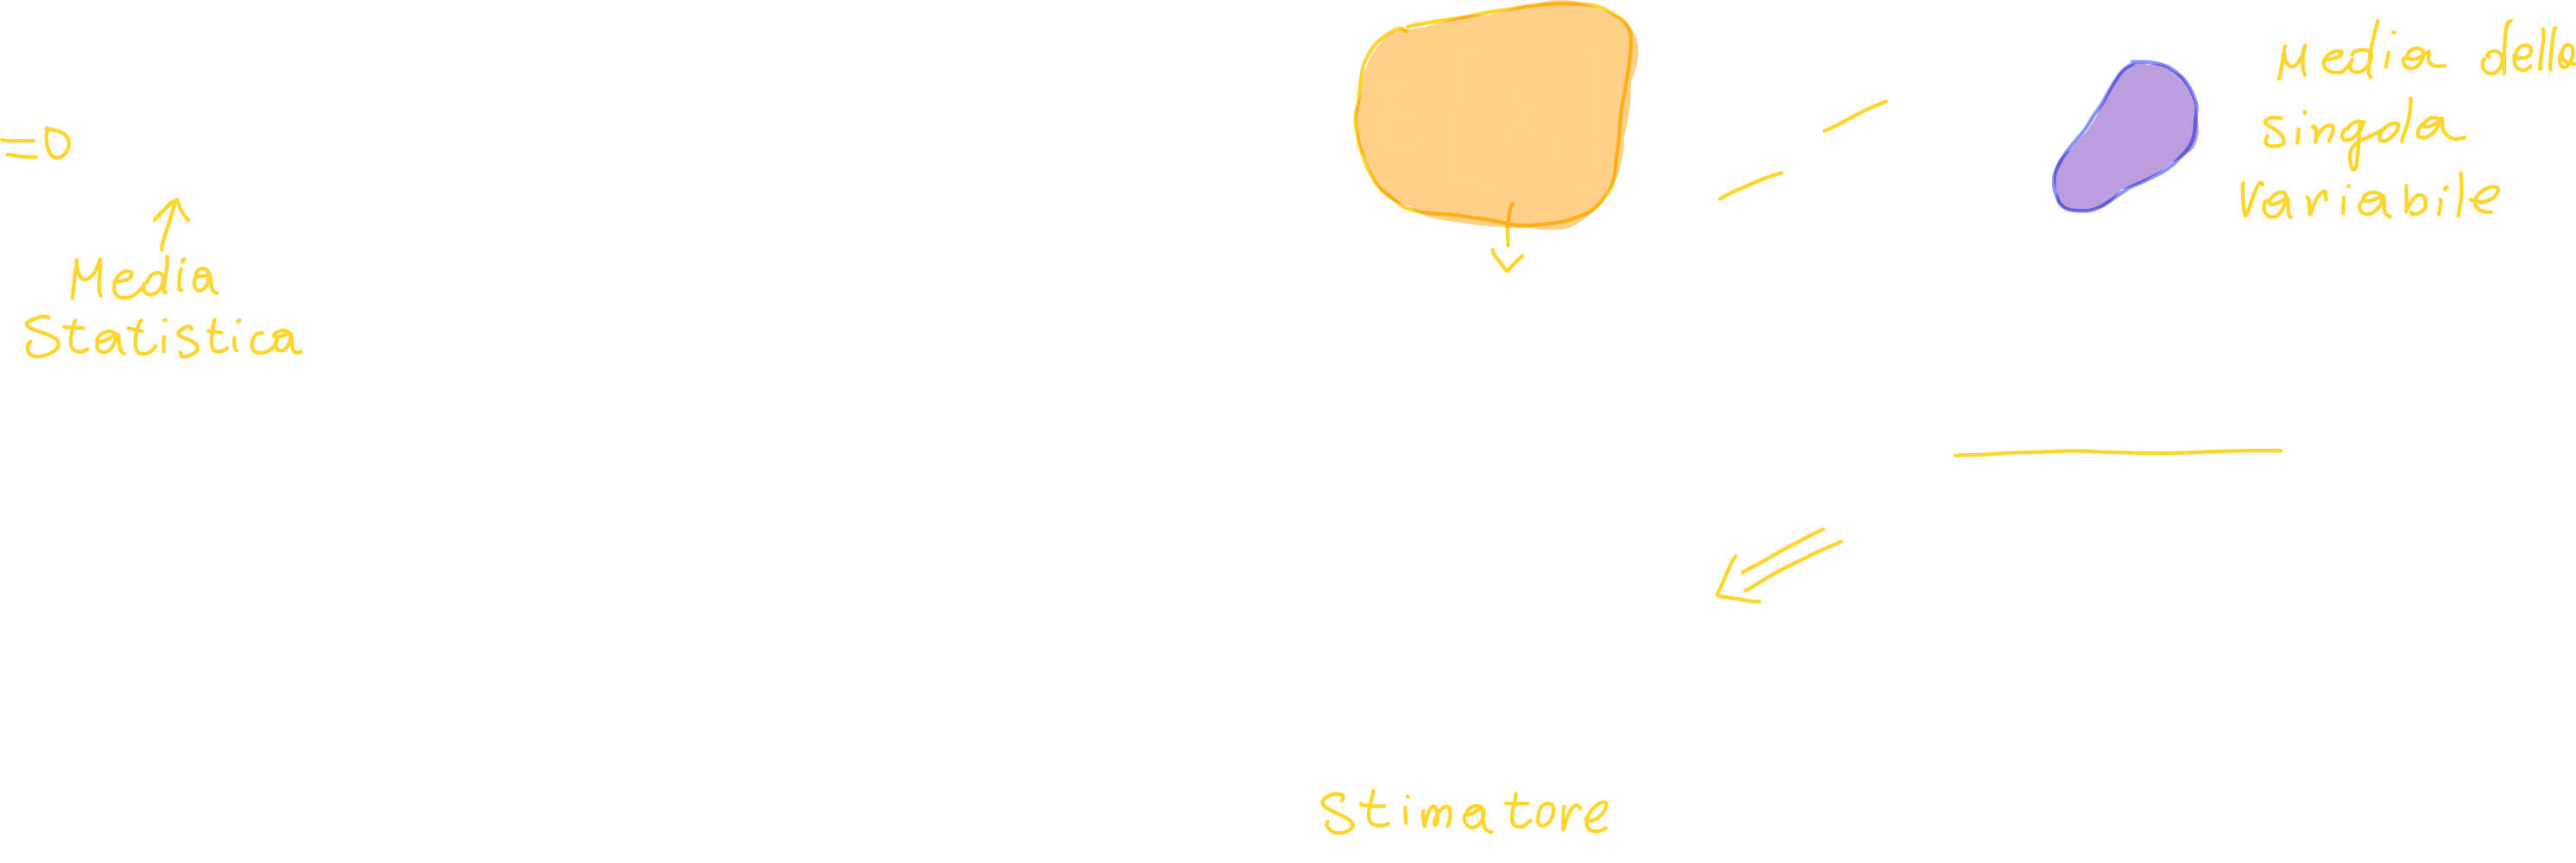 =0
Media
Statistica
Media della
singola
Variabile
Stimatore